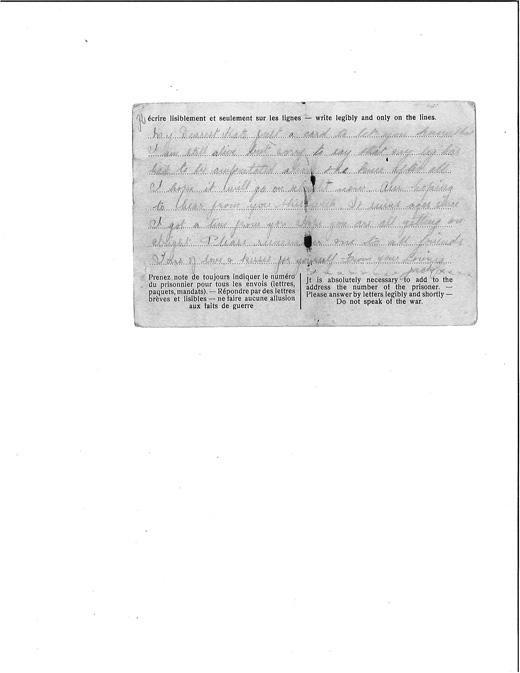 écrire lisiblement et seulement sur les lignes — write legibly and only on the lines.
My Dearest Kate just a card to let you know that
I am still alive but sorry to say that my leg has
had to be amputated above the knee after all
I hope it will go on alright now. Am hoping
to hear from you this week. It seems ages since
I got a line from you. Hope you are all getting on
alright. Please remember me to all friends
Tons of love & kisses for yourself From your loving
Prenez note de toujours indiquer le numéro
du prisonnier pour tous les envois (lettres,
paquets, mandats). — Répondre par des lettres
brèves et lisibles — ne faire aucune allusion
aux faits de guerre
Jt is absolutely necessary to add to the
address the number of the prisoner. —
Please answer by letters legibly and shortly —
Do not speak of the war.